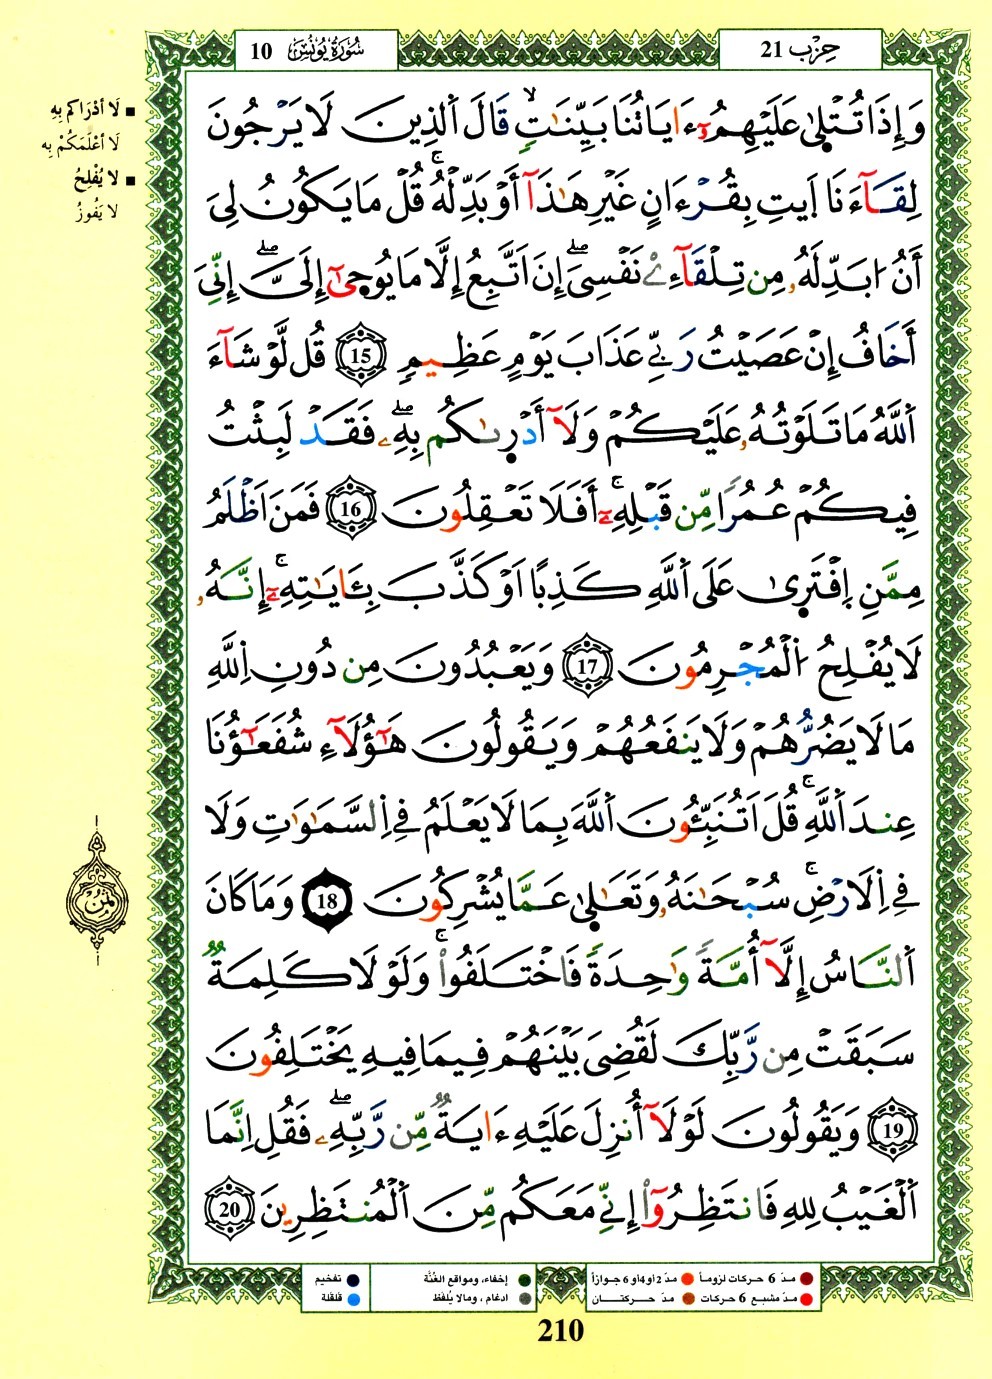 حِزْب 21
سُورَةُ يُونُسَ 10
وَإِذَا تُتْلَىٰ عَلَيْهِمُۥٓ ءَايَاتُنَا بَيِّنَٰتٖ قَالَ اَلذِينَ لَا يَرْجُونَ
لِقَآءَنَا اَ۪يتِ بِقُرْءَانٍ غَيْرِ هَٰذَآ أَوْ بَدِّلْهُۚ قُلْ مَا يَكُونُ لِىَ
أَنُ ا۟بَدِّلَهُۥ مِن تِلْقَآءِے نَفْسِىَۖ إِنَ اَتَّبِعُ إِلَّا مَا يُوحَىٰٓ إِلَىَّۖ إِنِّىَ
أَخَافُ إِنْ عَصَيْتُ رَبِّے عَذَابَ يَوْمٍ عَظِيمٖ 15 قُل لَّوْ شَآءَ
اَللَّهُ مَا تَلَوْتُهُۥ عَلَيْكُمْ وَلَآ أَدْر۪ىٰكُم بِهِۦۖ فَقَد لَّبِثْتُ
فِيكُمْ عُمُرًا مِّن قَبْلِهِۦٓۚ أَفَلَا تَعْقِلُونَ 16 فَمَنَ اَظْلَمُ
مِمَّنِ اِ۪فْتَر۪ىٰ عَلَى اَللَّهِ كَذِبًا اَوْ كَذَّبَ بِـَٔايَٰتِهِۦٓۚ إِنَّهُۥ
لَا يُفْلِحُ اُ۬لْمُجْرِمُونَ 17 وَيَعْبُدُونَ مِن دُونِ اِ۬للَّهِ
مَا لَا يَضُرُّهُمْ وَلَا يَنفَعُهُمْ وَيَقُولُونَ هَٰٓؤُلَآءِ شُفَعَٰٓؤُنَا
عِندَ اَللَّهِۚ قُلَ اَتُنَبِّـُٔونَ اَللَّهَ بِمَا لَا يَعْلَمُ فِے اِ۬لسَّمَٰوَٰتِ وَلَا
فِے اِ۬لَارْضِۚ سُبْحَٰنَهُۥ وَتَعَٰلَىٰ عَمَّا يُشْرِكُونَ 18 وَمَا كَانَ
اَلنَّاسُ إِلَّآ أُمَّةً وَٰحِدَةً فَاخْتَلَفُوا۟ۚ وَلَوْلَا كَلِمَةٌ
سَبَقَتْ مِن رَّبِّكَ لَقُضِىَ بَيْنَهُمْ فِيمَا فِيهِ يَخْتَلِفُونَ
19 وَيَقُولُونَ لَوْلَآ أُنزِلَ عَلَيْهِ ءَايَةٌ مِّن رَّبِّهِۦۖ فَقُلِ اِنَّمَا
اَلْغَيْبُ لِلهِ فَانتَظِرُوٓا۟ إِنِّے مَعَكُم مِّنَ اَلْمُنتَظِرِينَ 20
■ لَا أَدْرَاكم بِهِ
لَا أَعْلَمَكُمْ بِهِ
■ لا يُفْلِحُ
لا يَفُوزُ
ثُمُن
مدّ 6 حركات لزوماً
مدّ 2 أو 4 أو 6 جوازاً
إخفاء، ومواقع الغُنَّة
تفخيم
مدّ مشبع 6 حركات
مدّ حركتـان
ادغام، ومالا يُلفَظ
قلقلة
210